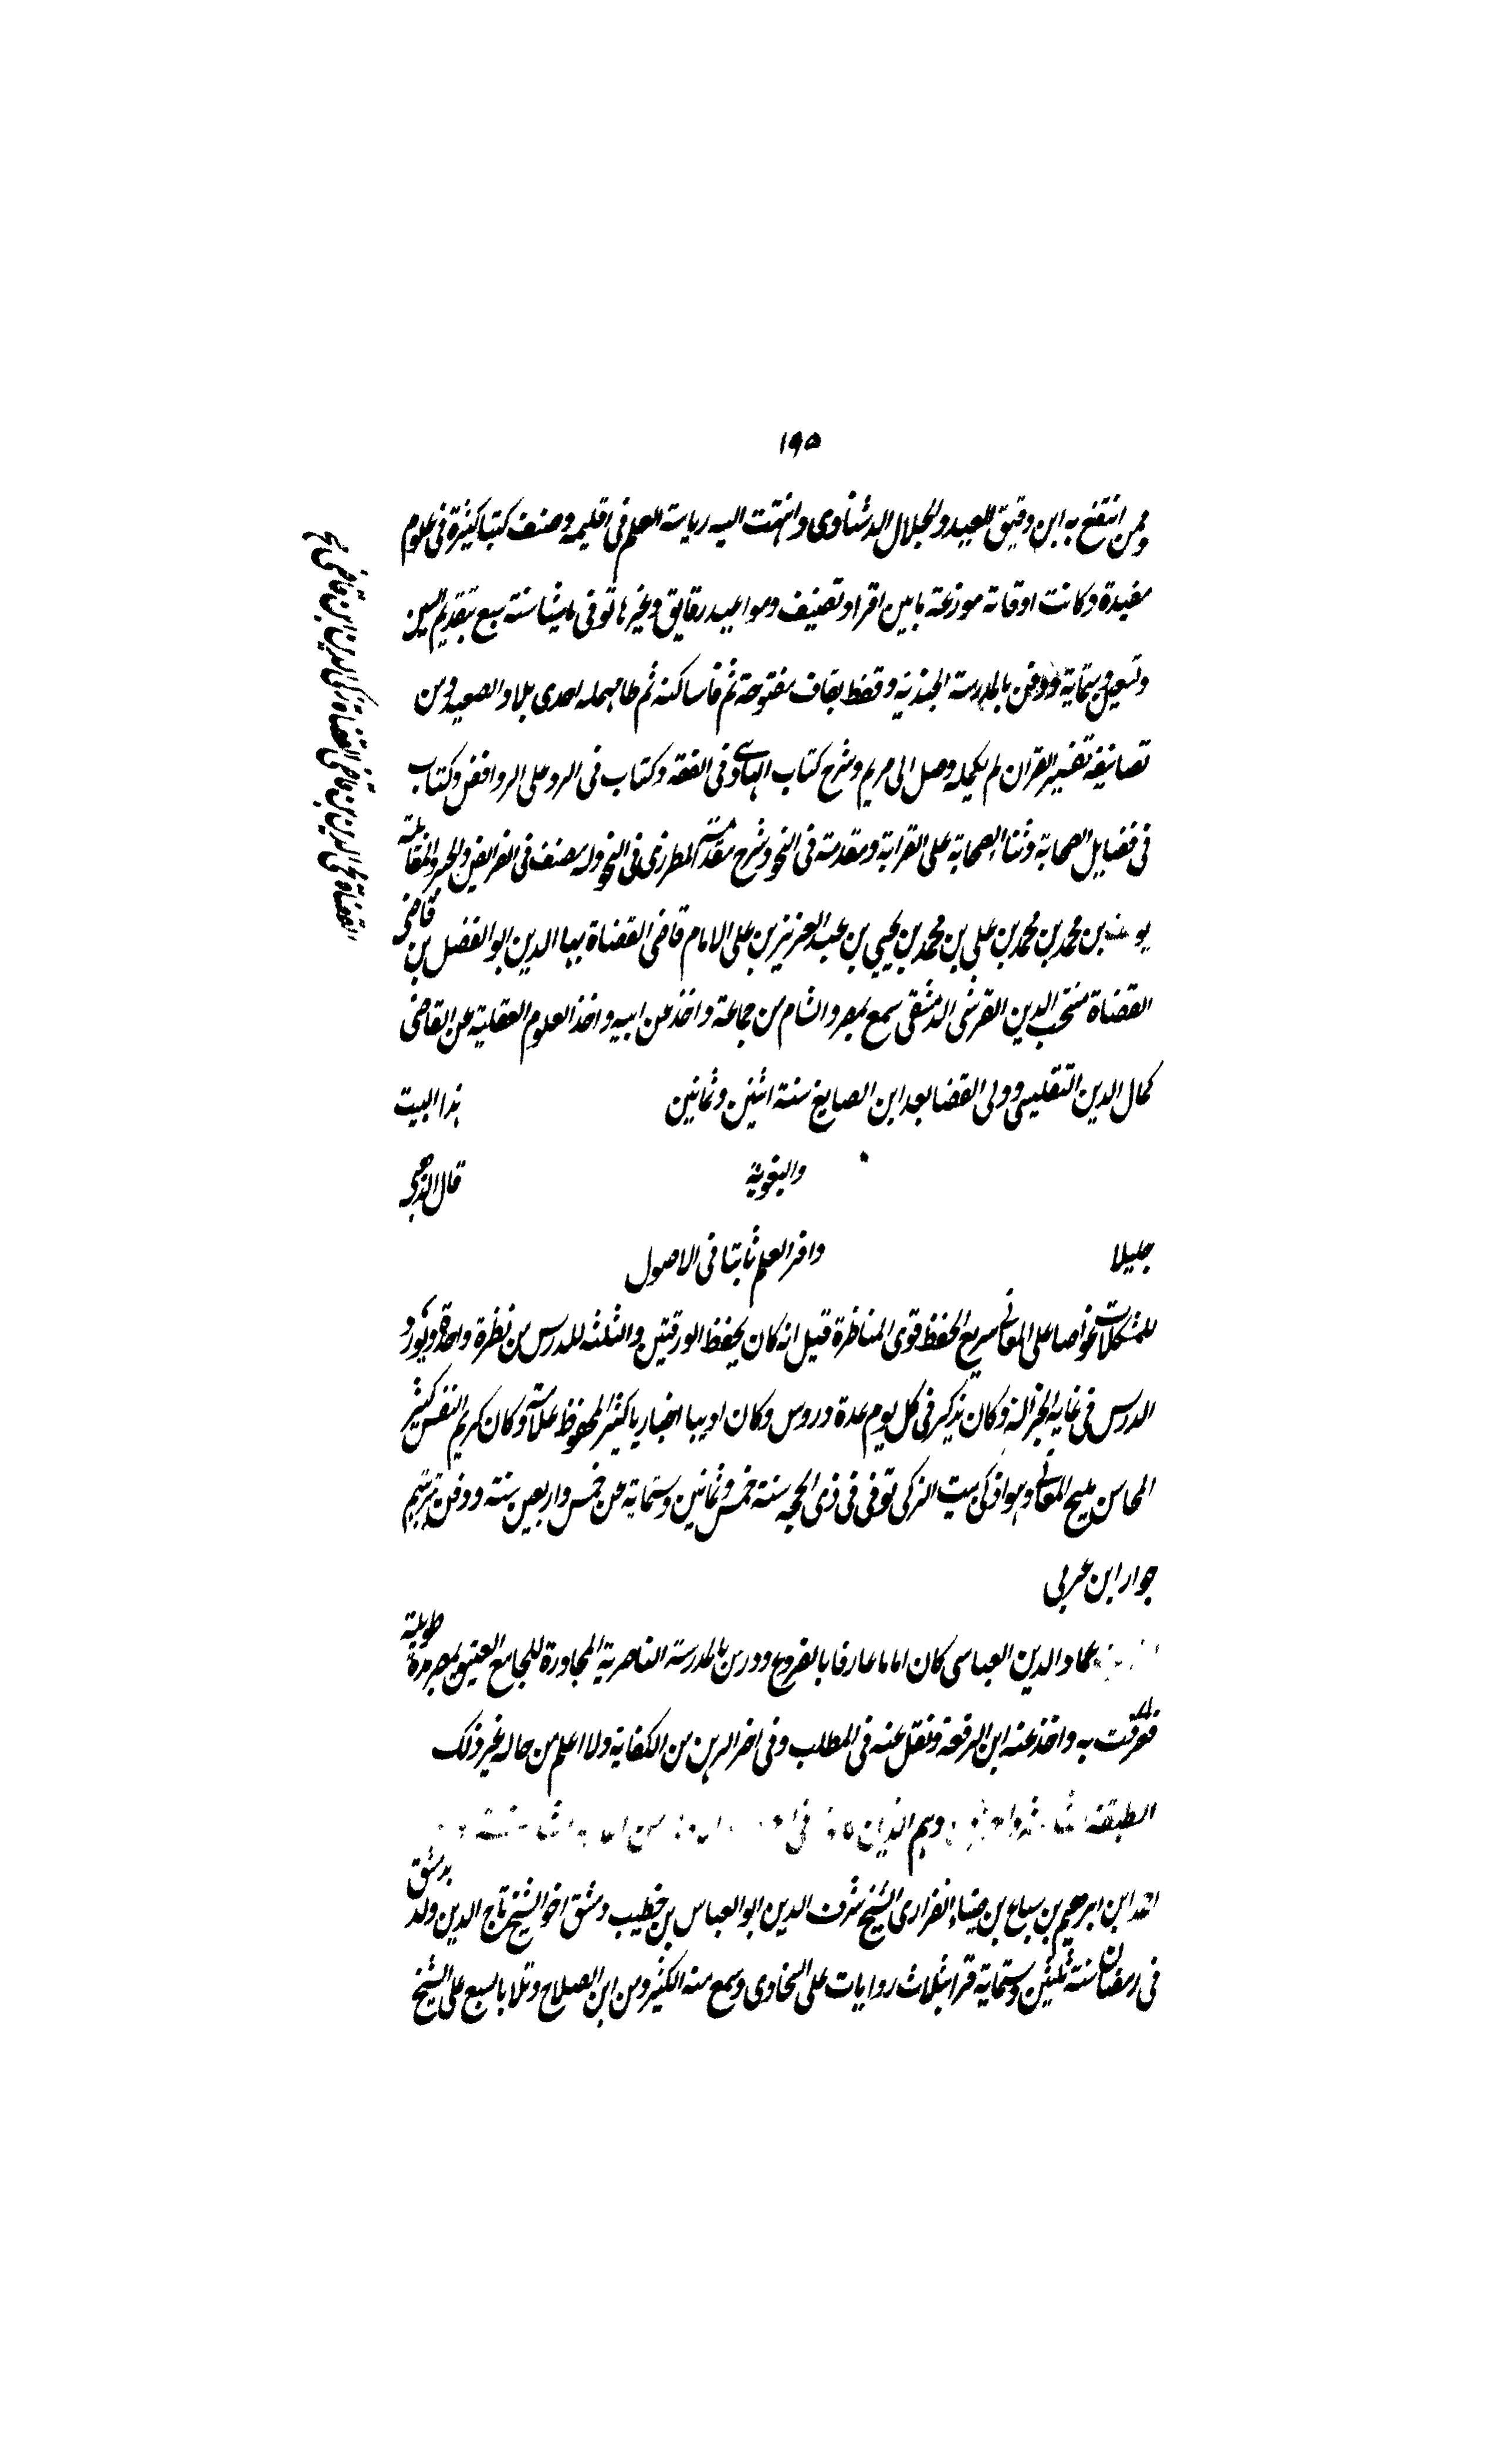 ١٩٥
وممن انتفع به ابن دقيق العيد والجلال الدشناوى وانتهت اليه رياسة العلم فى اقليمه وصنف كتبا كثيرة فى علوم
مفيدة وكانت اوقاته موزعة ما بين اقرا وتصنيف ومواعيد رقايق وغيرها توفى باسنا سنة سبع بتقديم السين
وتسعين وستماية ودفن بالمدرسة المجدية وقفط بقاف مفتوحة ثم فا ساكنه ثم طا مهمله احدى بلاد الصعيد ومن
تصانيفه تفسير القران لم يكمله وصل الى مريم وشرح كتاب الهادى فى الفقه وكتاب فى الرد على الروافض وكتاب
فى فضايل الصحابة وثنا الصحابة على القرابة ومقدمة فى النحو وشرح مقدمة المطرزى فى النحو وله مصنف فى الفرايض والجبر والمقابلة
يوسف بن محمد بن محمد بن على بن محمد بن يحيى بن عبد العزيز بن على الامام قاضى القضاة بها الدين ابو الفضل بن قاضى
القضاة منتخب الدين القرشى الدمشقى سمع بمصر والشام من جماعة واخذ عن ابيه واخذ العلوم العقلية عن القاضى
كمال الدين التفليسى وولى القضا بعد ابن الصايغ سنة اثنين وثمانين هذا البيت
قال الذهبى
جليلا وافر العلم ثابتا فى الاصول
للمشكلات غواصا على المعانى سريع الحفظ قوى المناظرة قيل انه كان يحفظ الورقتين والثلثه للدرس من نظرة واحدة ويورد
الدرس فى غاية الجزالة وكان يذكر فى كل يوم عدة دروس وكان اديبا اخباريا كثير المحفوظ علامة وكان كريم النفس كثير
المحاسن مليح المعانى وهو اذكى بيت الزكى توفى فى ذى الحجه سنة خمس وثمانين وستماية عن خمس واربعين سنه ودفن بتربتهم
جوار ابن عربى
عماد الدين العباسى كان اماما عارفا بالفروع ودرس بالمدرسة الناصرية المجاورة للجامع العتيق بمصر مدة طويلة
فعرفت به واخذ عنه ابن الرفعة ونقل عنه فى المطلب وفى اخر الرهن من الكفاية ولا اعلم من حاله غير ذلك
الطبقة وهم الذين فى
احمد ابن ابرهيم بن سباع بن ضياء الفزارى الشيخ شرف الدين ابو العباس بن خطيب دمشق اخو الشيخ تاج الدين ولد بدمشق
فى رمضان سنة ثلثين وستماية قرا بثلاث روايات على السخاوى وسمع منه الكثير ومن ابن الصلاح وتلا بالسبع على الشيخ